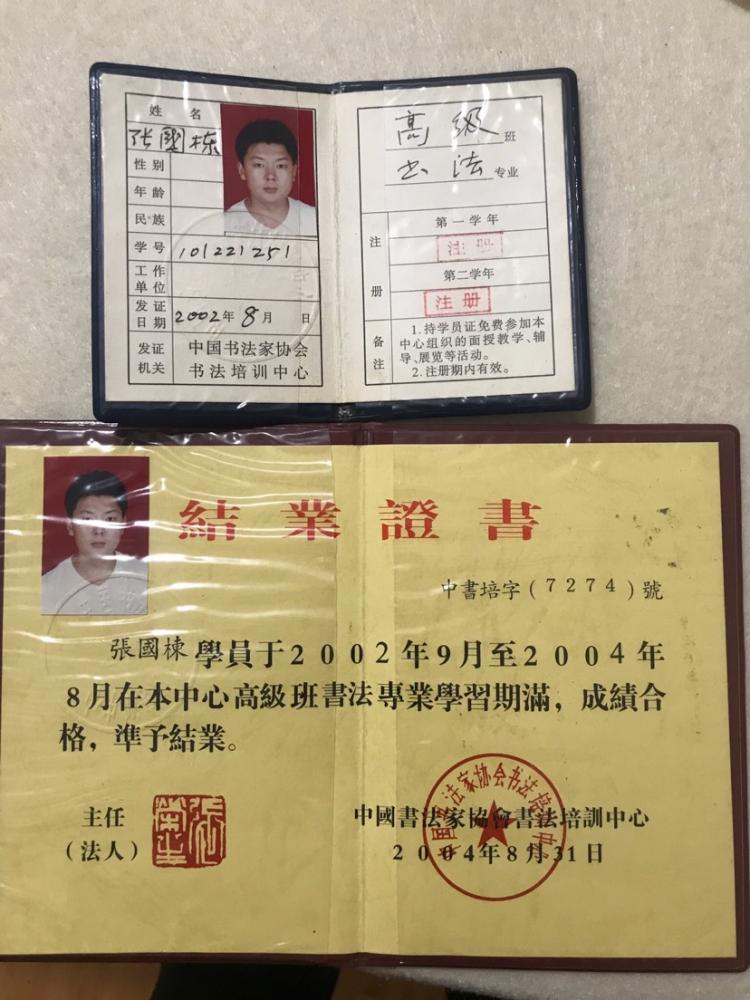 姓 名
张國栋
性别
年龄
民族
学号 101221251
工作
单位
发证
日期 2002年8月 日
发证
机关
中国书法家协会
书法培训中心
高级班
书法专业
注
册
第一学年
注册
第二学年
注册
备
注
1.持学员证免费参加本
中心组织的面授教学、辅
导、展览等活动。
2.注册期内有效。
結業證書
中書培字(7274)號
張國棟學員于2002年9月至2004年
8月在本中心高級班書法專業學習期滿，成績合
格，準予結業。
主任
(法人)
中國書法家協會書法培訓中心
2004年8月31日